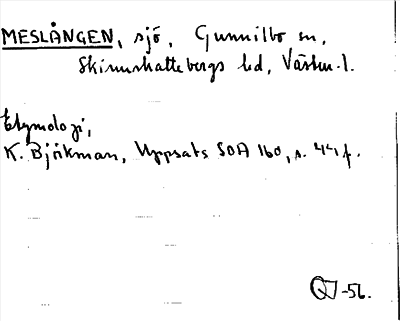 MESLÅNGEN, sjö, Gunnilbo sn,
Skinnskattebergs hd, Västm. l.
Etymologi,
K. Björkman, Uppsats SOA 160, s. 44 f.
-56.